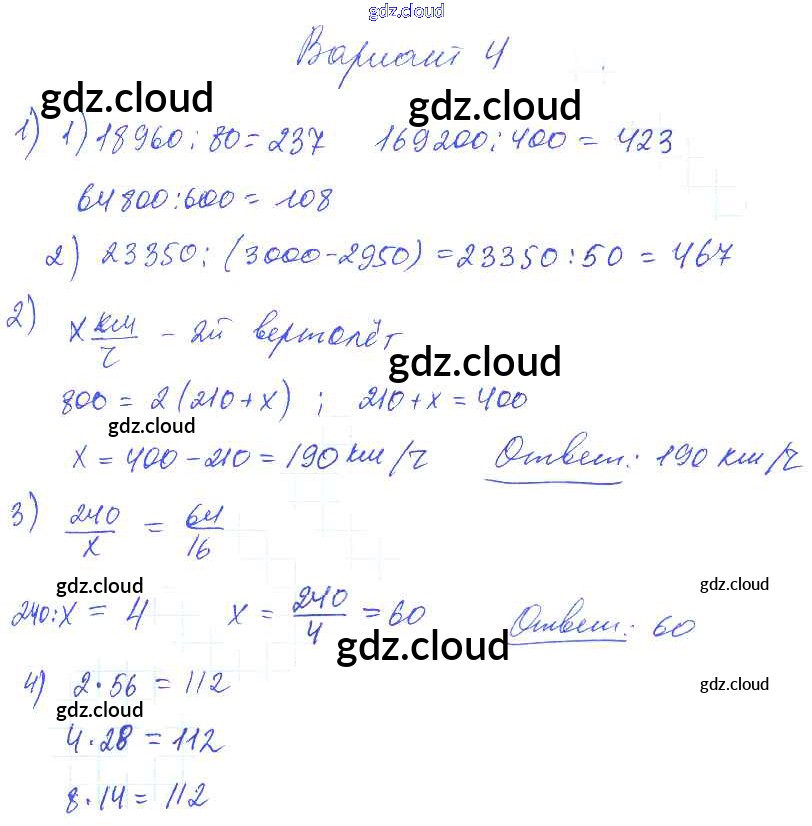 gdz.cloud
Вариант 4
gdz.cloud gdz.cloud
1) 1) 18960 : 80 = 237 169200 : 400 = 423
64800 : 600 = 108
2) 23350 : (3000 - 2950) = 23350 : 50 = 467
2) x км/ч - 2й вертолёт
gdz.cloud
800 = 2 (210 + x) ; 210 + x = 400
gdz.cloud
x = 400 - 210 = 190 км/ч Ответ: 190 км/ч
3) 240/x = 64/16
gdz.cloud gdz.cloud
240 : x = 4 x = 240/4 = 60 Ответ: 60
gdz.cloud
4) 2 · 56 = 112
gdz.cloud
gdz.cloud
4 · 28 = 112
8 · 14 = 112